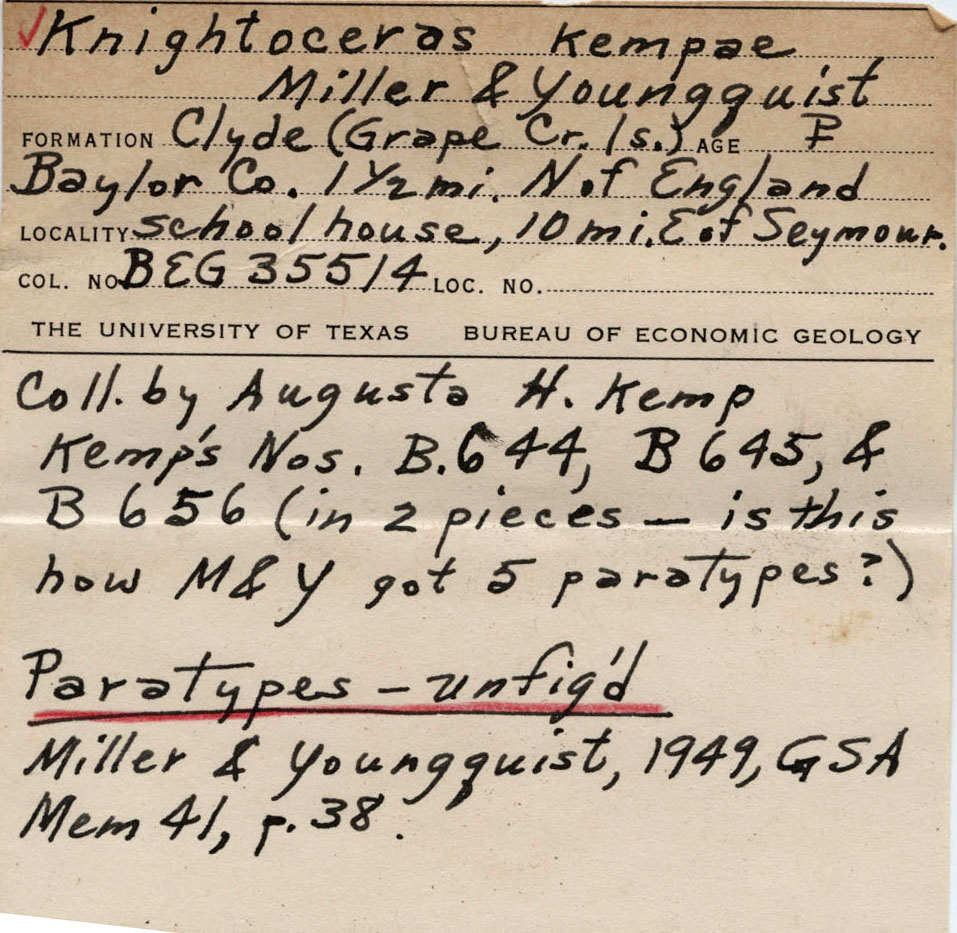 ✓Knightoceras kempae
Miller & Youngquist
FORMATION Clyde (Grape Cr. ls.) AGE P
Baylor Co. 1 1/2 mi. N of England
LOCALITY school house, 10 mi. E of Seymour.
COL. NO. BEG 35514 LOC. NO.
THE UNIVERSITY OF TEXAS BUREAU OF ECONOMIC GEOLOGY
Coll. by Augusta H. Kemp
Kemp's Nos. B.644, B 645, &
B 656 (in 2 pieces — is this
how M & Y got 5 paratypes?)
Paratypes - unfig'd
Miller & Youngquist, 1949, GSA
Mem 41, p. 38.